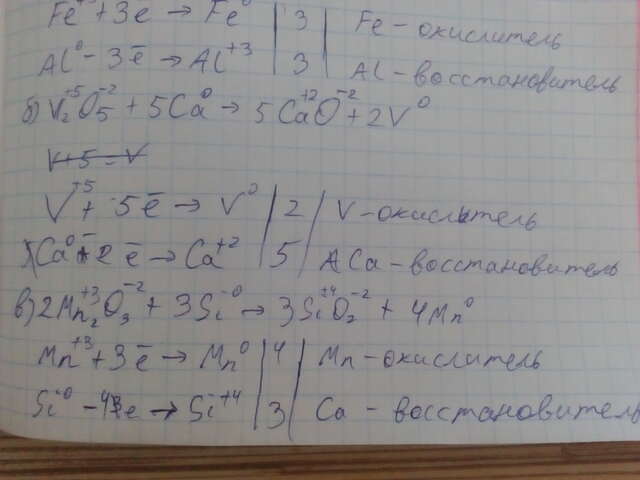 Fe⁺³ + 3ē → Fe⁰ | 3 | Fe - окислитель
Al⁰ - 3ē → Al⁺³ | 3 | Al - восстановитель
б) V₂⁺⁵O₅⁻² + 5Ca⁰ → 5Ca⁺²O⁻² + 2V⁰
V+5=V
V⁺⁵ + 5ē → V⁰ | 2 | V - окислитель
Ca⁰ - 2ē → Ca⁺² | 5 | Ca - восстановитель
в) 2Mn₂⁺³O₃⁻² + 3Si⁰ → 3Si⁺⁴O₂⁻² + 4Mn⁰
Mn⁺³ + 3ē → Mn⁰ | 4 | Mn - окислитель
Si⁰ - 4ē → Si⁺⁴ | 3 | Ca - восстановитель